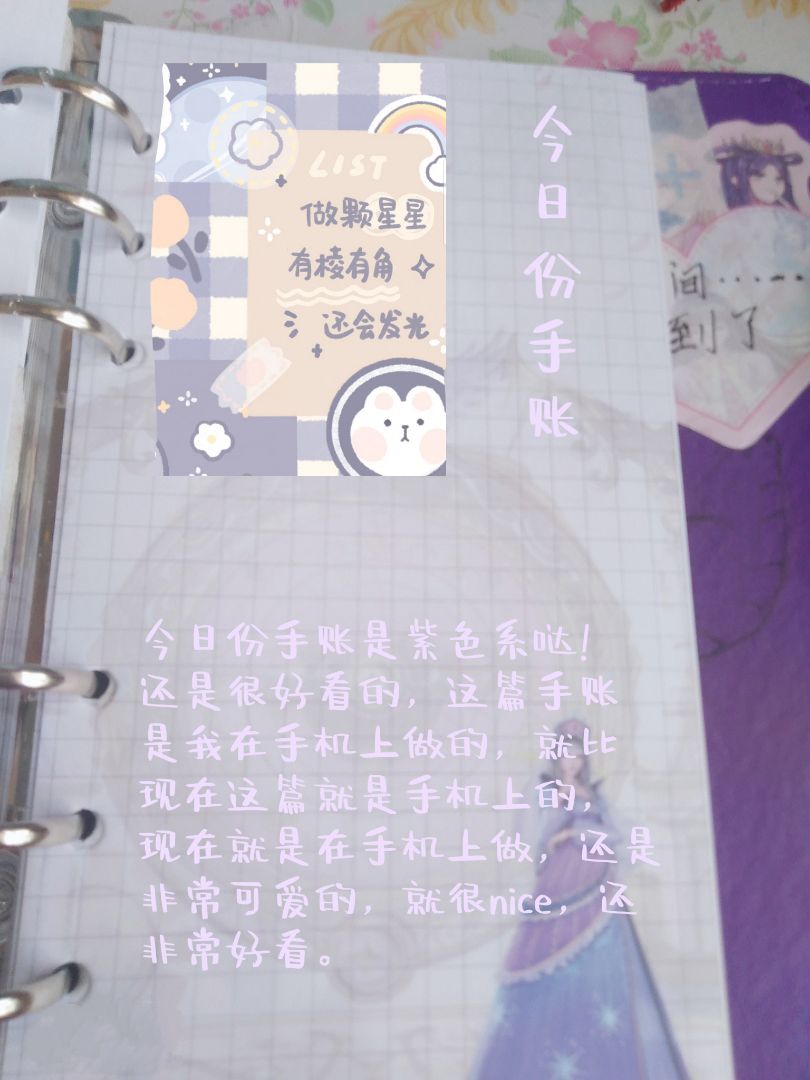 LIST
做颗星星
有棱有角
还会发光
今日份手账
间……
到了
今日份手账是紫色系哒！
还是很好看的，这篇手账
是我在手机上做的，就比
现在这篇就是手机上的，
现在就是在手机上做，还是
非常可爱的，就很nice，还
非常好看。